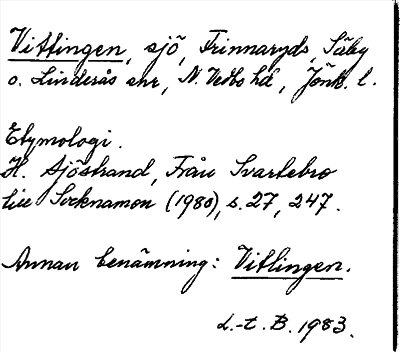 Vittingen, sjö, Frinnaryds, Säby
o. Linderås snr, N. Vedbo hd, Jönk. l.
Etymologi.
H. Sjöstrand, Från Svartebro
till Socknamon (1980), s. 27, 247.
Annan benämning: Vitlingen.
L.-t. B. 1983.